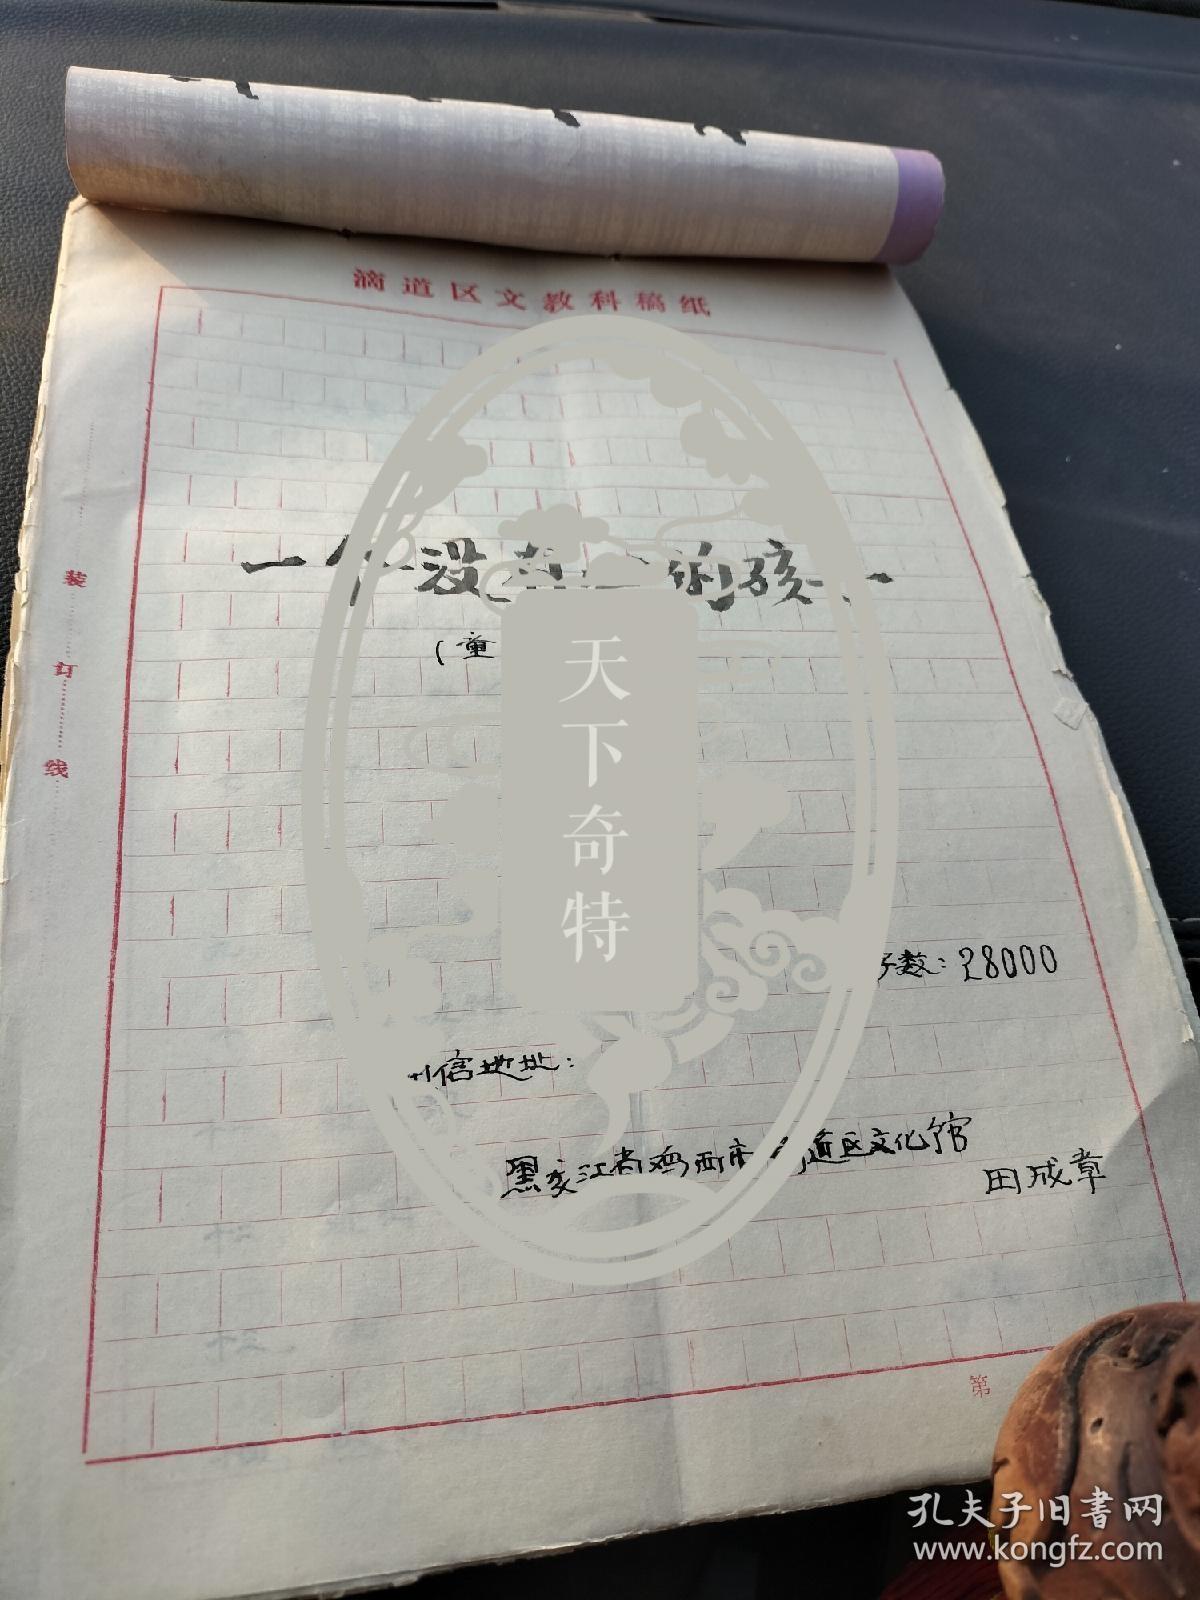 滴道区文教科稿纸
一个没有的孩
(童
字数：28000
信地址：
黑龙江省鸡西市道区文化馆
田成章
装订线
第
天下奇特
孔夫子旧书网
www.kongfz.com